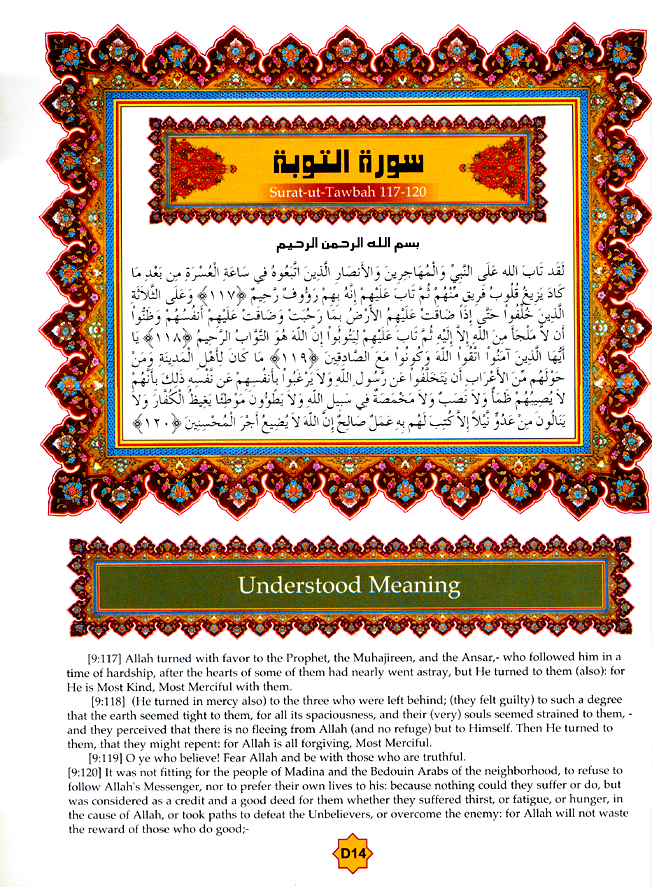 سورة التوبة
Surat-ut-Tawbah 117-120
بسم الله الرحمن الرحيم
لَقَد تَابَ الله عَلَى النَّبِيِّ وَالْمُهَاجِرِينَ وَالأَنصَارِ الَّذِينَ اتَّبَعُوهُ فِي سَاعَةِ الْعُسْرَةِ مِن بَعْدِ مَا
كَادَ يَزِيغُ قُلُوبُ فَرِيقٍ مِّنْهُمْ ثُمَّ تَابَ عَلَيْهِمْ إِنَّهُ بِهِمْ رَؤُوفٌ رَّحِيمٌ ﴿١١٧﴾ وَعَلَى الثَّلاَثَةِ
الَّذِينَ خُلِّفُواْ حَتَّى إِذَا ضَاقَتْ عَلَيْهِمُ الأَرْضُ بِمَا رَحُبَتْ وَضَاقَتْ عَلَيْهِمْ أَنفُسُهُمْ وَظَنُّواْ
أَن لاَّ مَلْجَأَ مِنَ اللهِ إِلاَّ إِلَيْهِ ثُمَّ تَابَ عَلَيْهِمْ لِيَتُوبُواْ إِنَّ اللهَ هُوَ التَّوَّابُ الرَّحِيمُ ﴿١١٨﴾ يَا
أَيُّهَا الَّذِينَ آمَنُواْ اتَّقُواْ اللهَ وَكُونُواْ مَعَ الصَّادِقِينَ ﴿١١٩﴾ مَا كَانَ لِأَهْلِ الْمَدِينَةِ وَمَنْ
حَوْلَهُم مِّنَ الأَعْرَابِ أَن يَتَخَلَّفُواْ عَن رَّسُولِ اللهِ وَلاَ يَرْغَبُواْ بِأَنفُسِهِمْ عَن نَّفْسِهِ ذَلِكَ بِأَنَّهُمْ
لاَ يُصِيبُهُمْ ظَمَأٌ وَلاَ نَصَبٌ وَلاَ مَخْمَصَةٌ فِي سَبِيلِ اللهِ وَلاَ يَطَؤُونَ مَوْطِئًا يَغِيظُ الْكُفَّارَ وَلاَ
يَنَالُونَ مِنْ عَدُوٍّ نَّيْلاً إِلاَّ كُتِبَ لَهُم بِهِ عَمَلٌ صَالِحٌ إِنَّ اللهَ لاَ يُضِيعُ أَجْرَ الْمُحْسِنِينَ ﴿١٢٠﴾
Understood Meaning
[9:117] Allah turned with favor to the Prophet, the Muhajireen, and the Ansar,- who followed him in a
time of hardship, after the hearts of some of them had nearly went astray, but He turned to them (also): for
He is Most Kind, Most Merciful with them.
[9:118] (He turned in mercy also) to the three who were left behind; (they felt guilty) to such a degree
that the earth seemed tight to them, for all its spaciousness, and their (very) souls seemed strained to them, -
and they perceived that there is no fleeing from Allah (and no refuge) but to Himself. Then He turned to
them, that they might repent: for Allah is all forgiving, Most Merciful.
[9:119] O ye who believe! Fear Allah and be with those who are truthful.
[9:120] It was not fitting for the people of Madina and the Bedouin Arabs of the neighborhood, to refuse to
follow Allah's Messenger, nor to prefer their own lives to his: because nothing could they suffer or do, but
was considered as a credit and a good deed for them whether they suffered thirst, or fatigue, or hunger, in
the cause of Allah, or took paths to defeat the Unbelievers, or overcome the enemy: for Allah will not waste
the reward of those who do good;-
D14